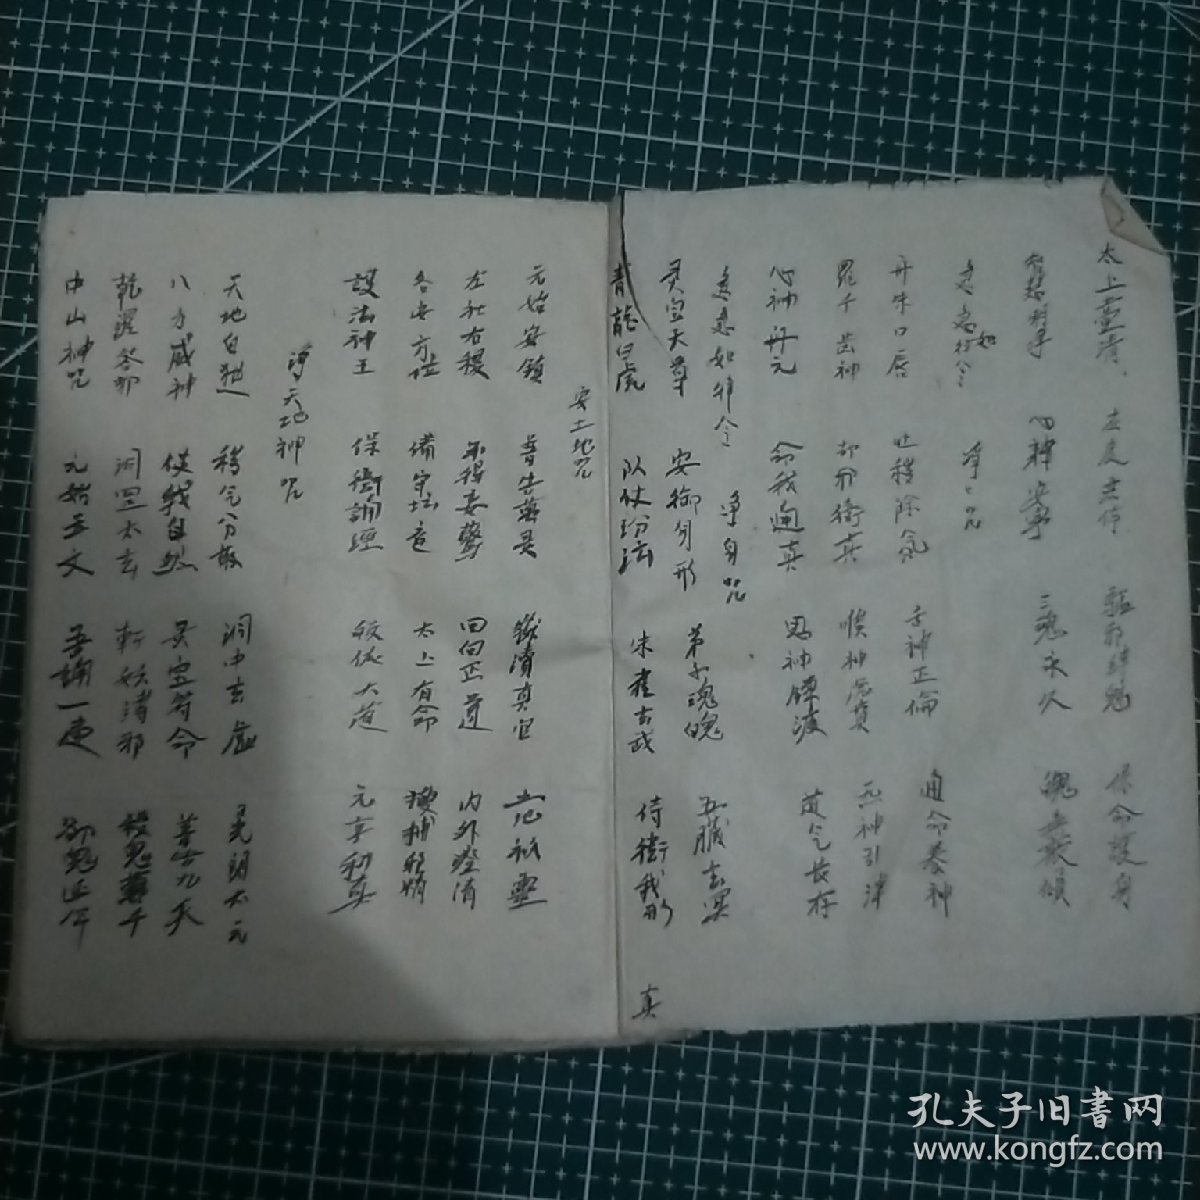 太上臺清 去是去停 驅邪縛鬼 保命護身
智慧明淨 心神安寧 三魂永久 魄無喪傾
急急如律令 净口咒
丹朱口唇 吐穢除氛 舌神正倫 通命養神
羅千齒神 却邪衛真 喉神虎賁 炁神引津
心神丹元 令我通真 思神鍊液 道气长存
急急如律令 净身咒
灵宝天尊 安御身形 弟子魂魄 五臟玄冥
青龍白虎 队仗纷纭 朱雀玄武 侍衛我形 真
安土地咒
元始安镇 普告萬灵 嶽渎真官 土地祇靈
左社右稷 不得妄驚 回向正道 内外澄清
各安方位 備守坛庭 太上有命 搜捕邪精
護法神王 保衛誦經 皈依大道 元亨利貞
净天地神咒
天地自然 穢气分散 洞中玄虚 晃朗太元
八方威神 使我自然 灵宝符命 普告九天
乾羅答那 洞罡太玄 斬妖縛邪 殺鬼萬千
中山神咒 元始玉文 吾誦一遍 却鬼延年
孔夫子旧書网
www.kongfz.com